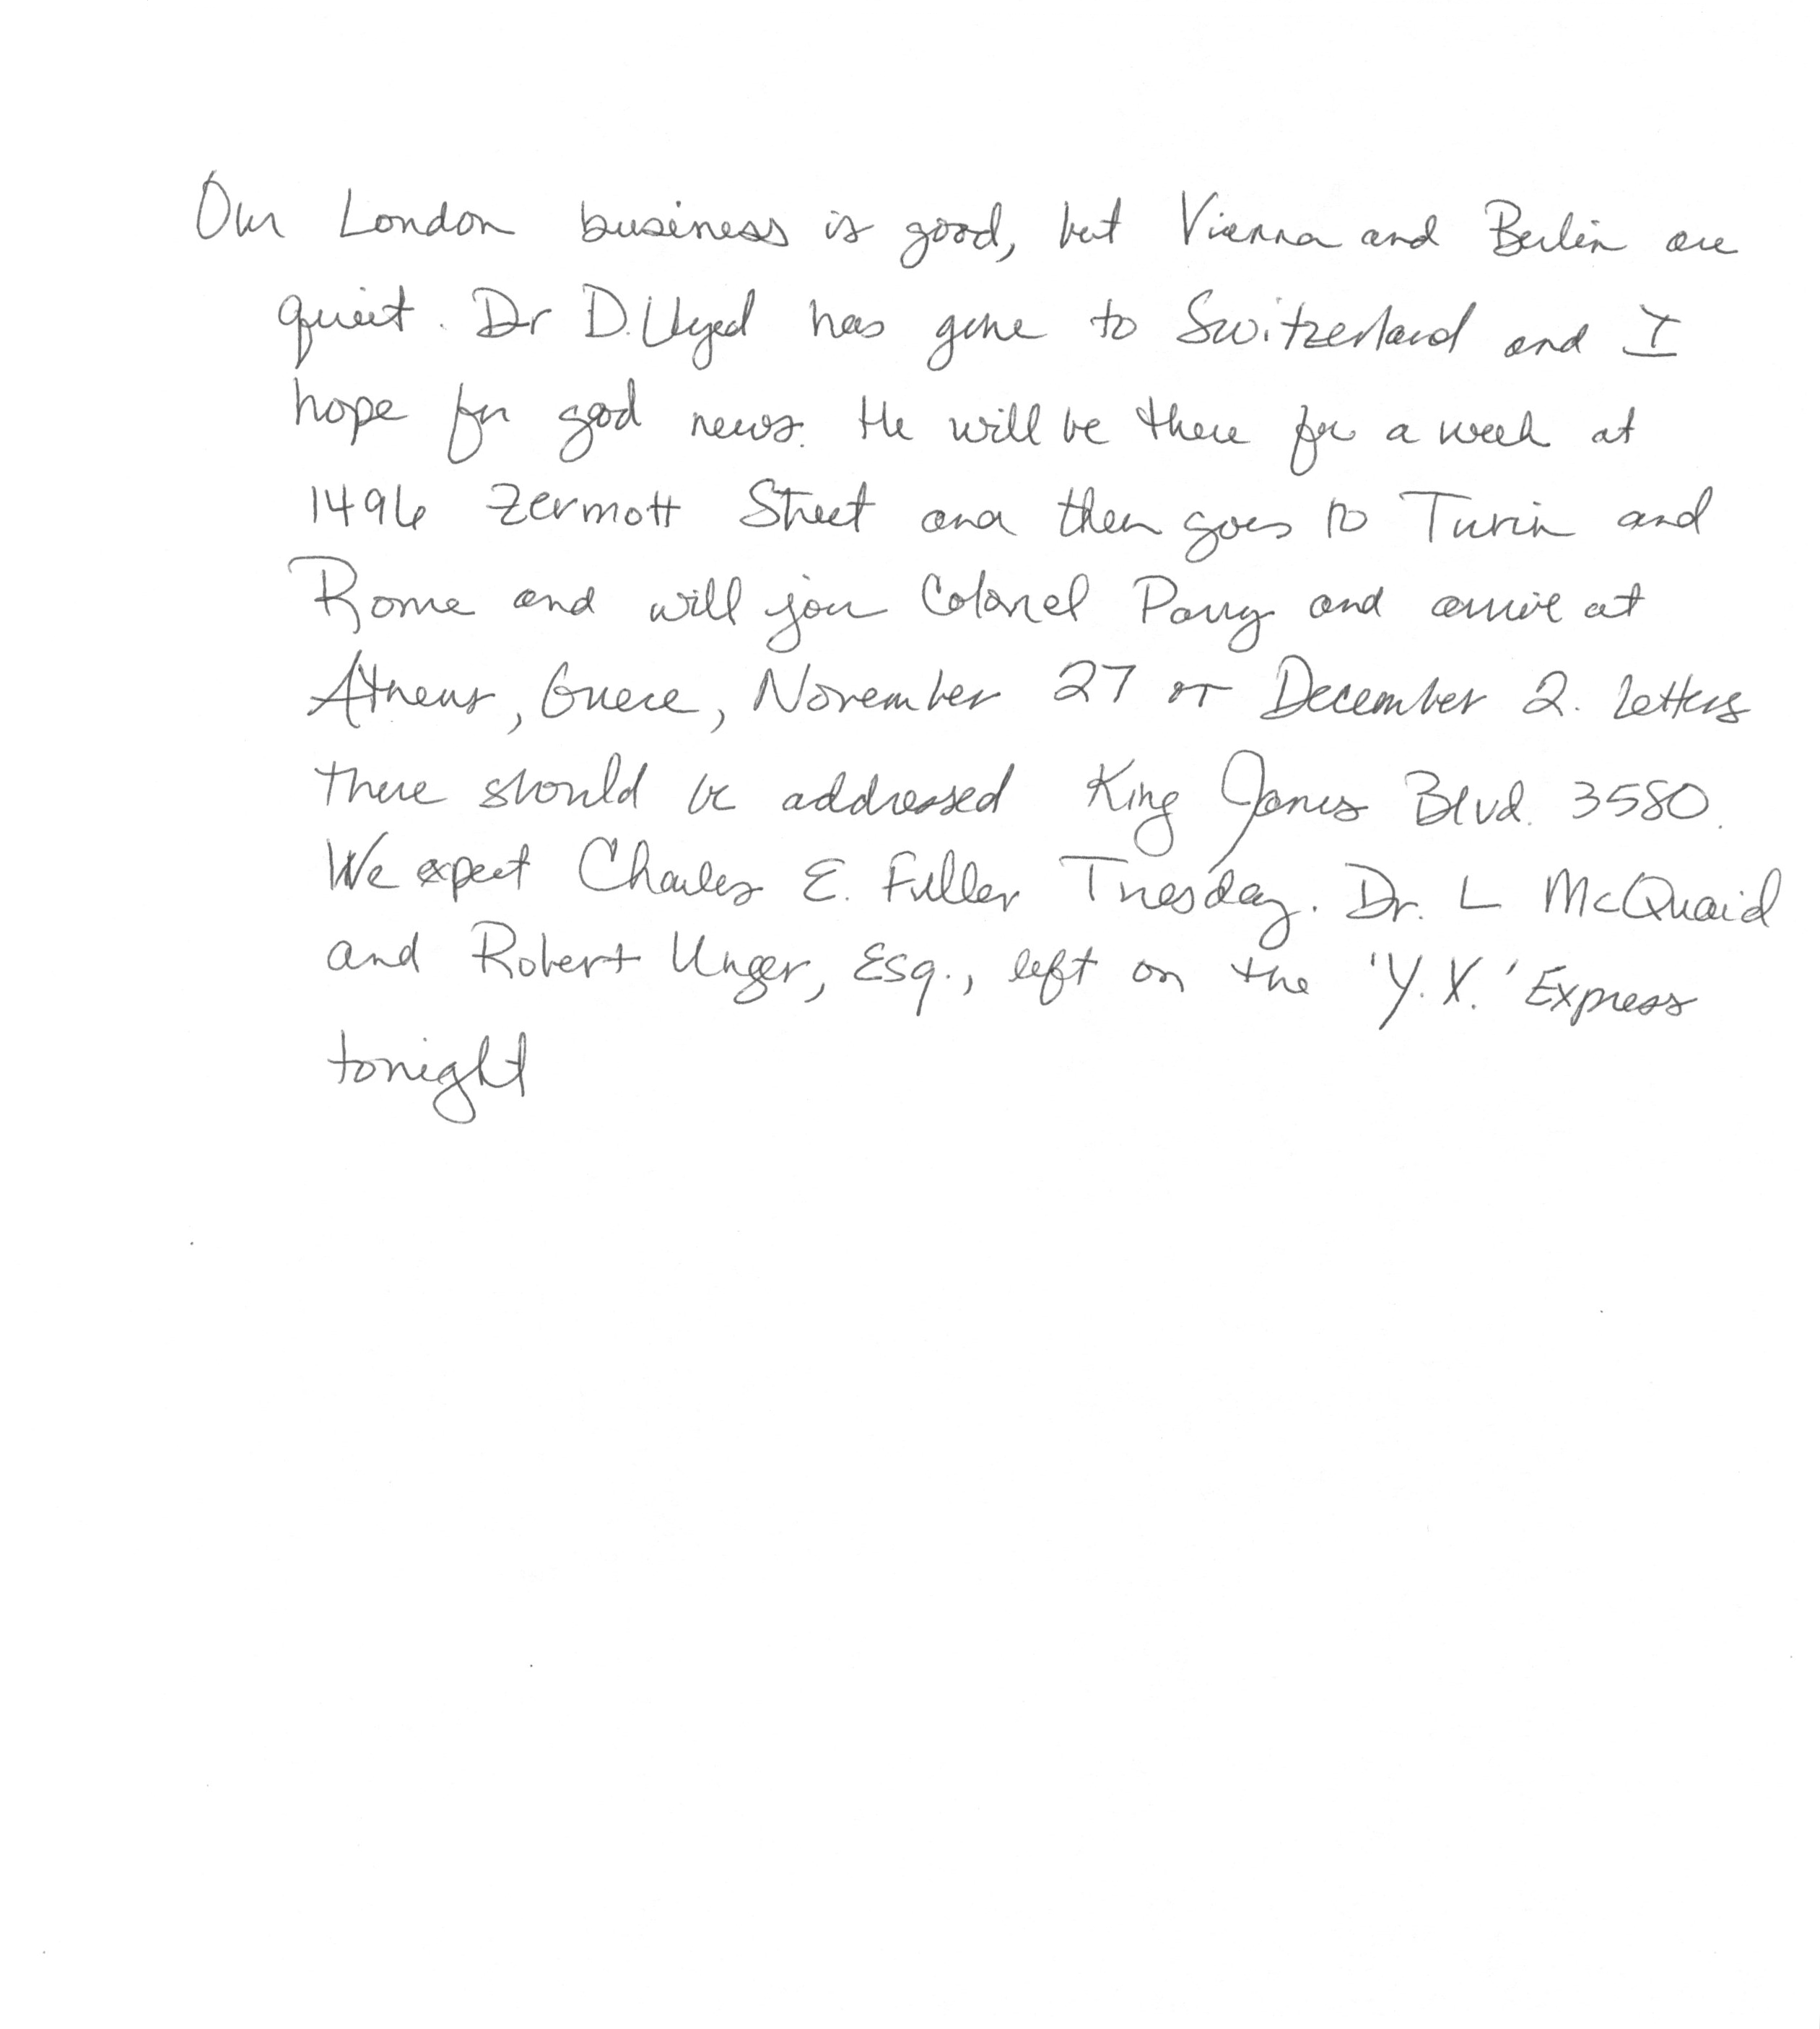 Our London business is good, but Vienna and Berlin are
quiet. Dr D. Lloyd has gone to Switzerland and I
hope for good news. He will be there for a week at
1496 Zermott Street and then goes to Turin and
Rome and will join Colonel Parry and arrive at
Athens, Greece, November 27 or December 2. Letters
there should be addressed King James Blvd. 3580.
We expect Charles E. Fuller Tuesday. Dr. L McQuaid
and Robert Unger, Esq., left on the 'Y.X.' Express
tonight